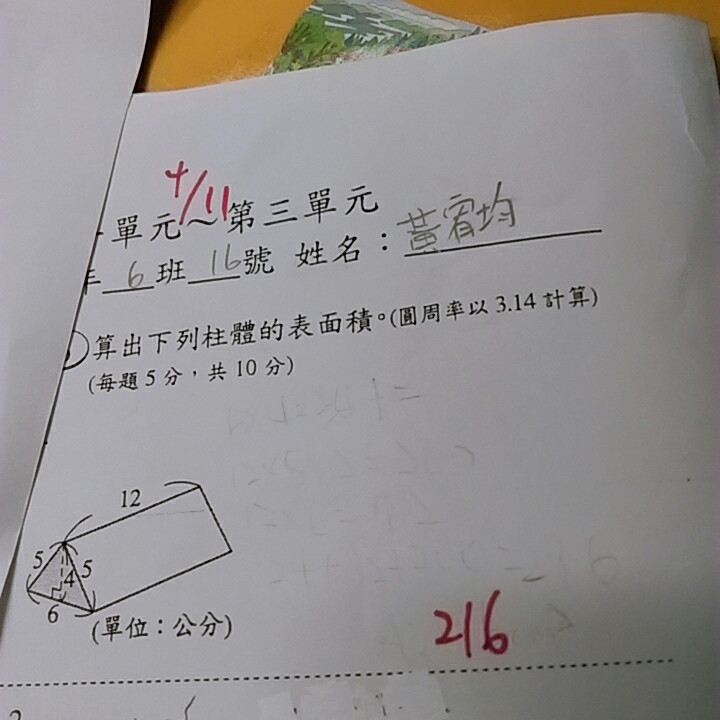 4/11
單元～第三單元
年 6 班 16 號 姓名：黃宥均
算出下列柱體的表面積。(圓周率以 3.14 計算)
(每題 5 分，共 10 分)
12
5
4
5
6
(單位：公分)
216
2